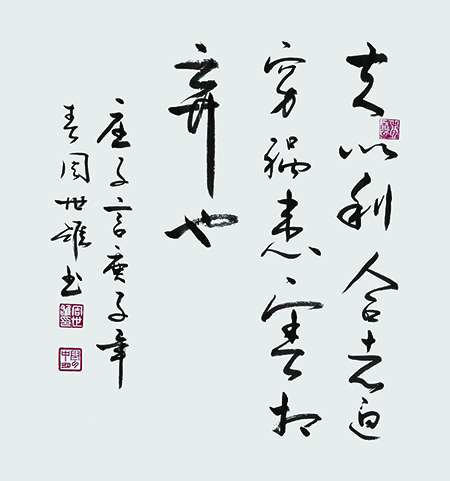 夫以利合者迫
穷祸患害相
弃也
庄子言庚子年
春周世雄书